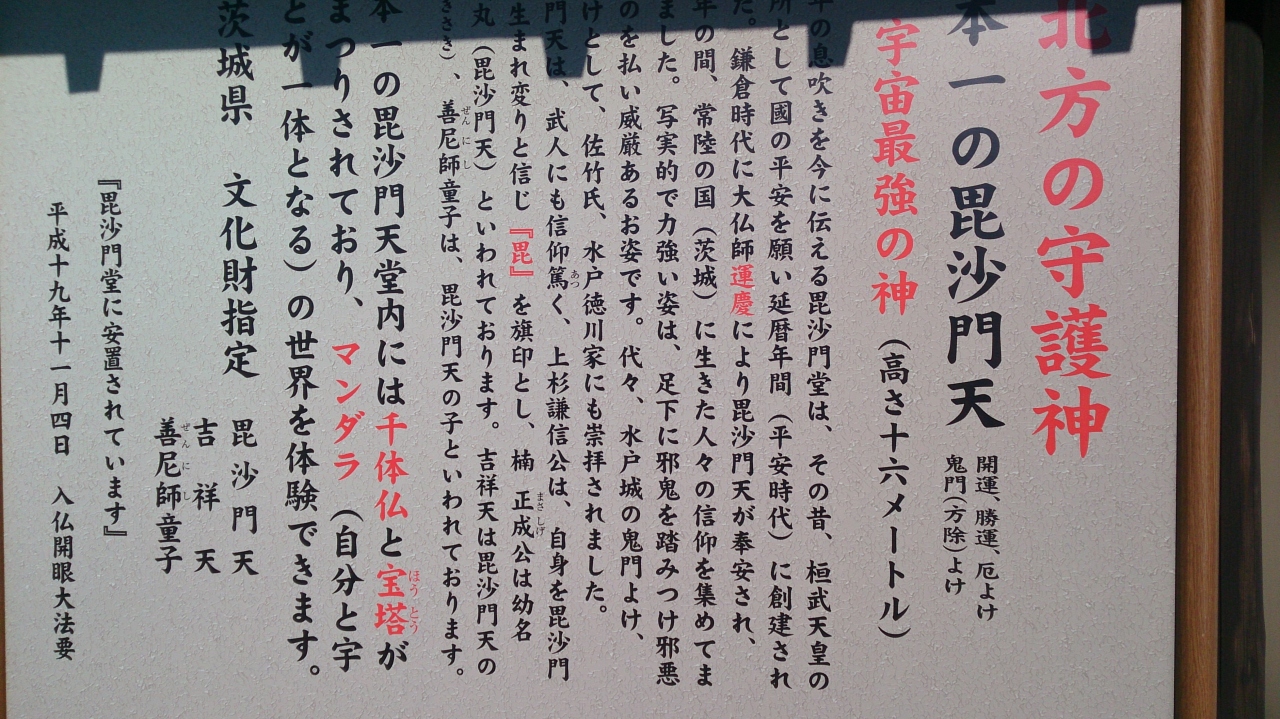 北方の守護神
本一の毘沙門天
開運、勝運、厄よけ
鬼門(方除)よけ
宇宙最強の神(高さ十六メートル)
年の息吹きを今に伝える毘沙門堂は、その昔、桓武天皇の
所として國の平安を願い延暦年間(平安時代)に創建され
た。鎌倉時代に大仏師運慶により毘沙門天が奉安され、
年の間、常陸の国(茨城)に生きた人々の信仰を集めてま
ました。写実的で力強い姿は、足下に邪鬼を踏みつけ邪悪
のを払い威厳あるお姿です。代々、水戸城の鬼門よけ、
けとして、佐竹氏、水戸徳川家にも崇拝されました。
門天は、武人にも信仰篤く、上杉謙信公は、自身を毘沙門
生まれ変りと信じ『毘』を旗印とし、楠正成公は幼名
丸(毘沙門天)といわれております。吉祥天は毘沙門天の
きさき)、善尼師童子は、毘沙門天の子といわれております。
本一の毘沙門天堂内には千体仏と宝塔が
まつりされており、マンダラ(自分と宇
とが一体となる)の世界を体験できます。
茨城県 文化財指定 毘沙門天
吉祥天
善尼師童子
『毘沙門堂に安置されています』
平成十九年十一月四日 入仏開眼大法要